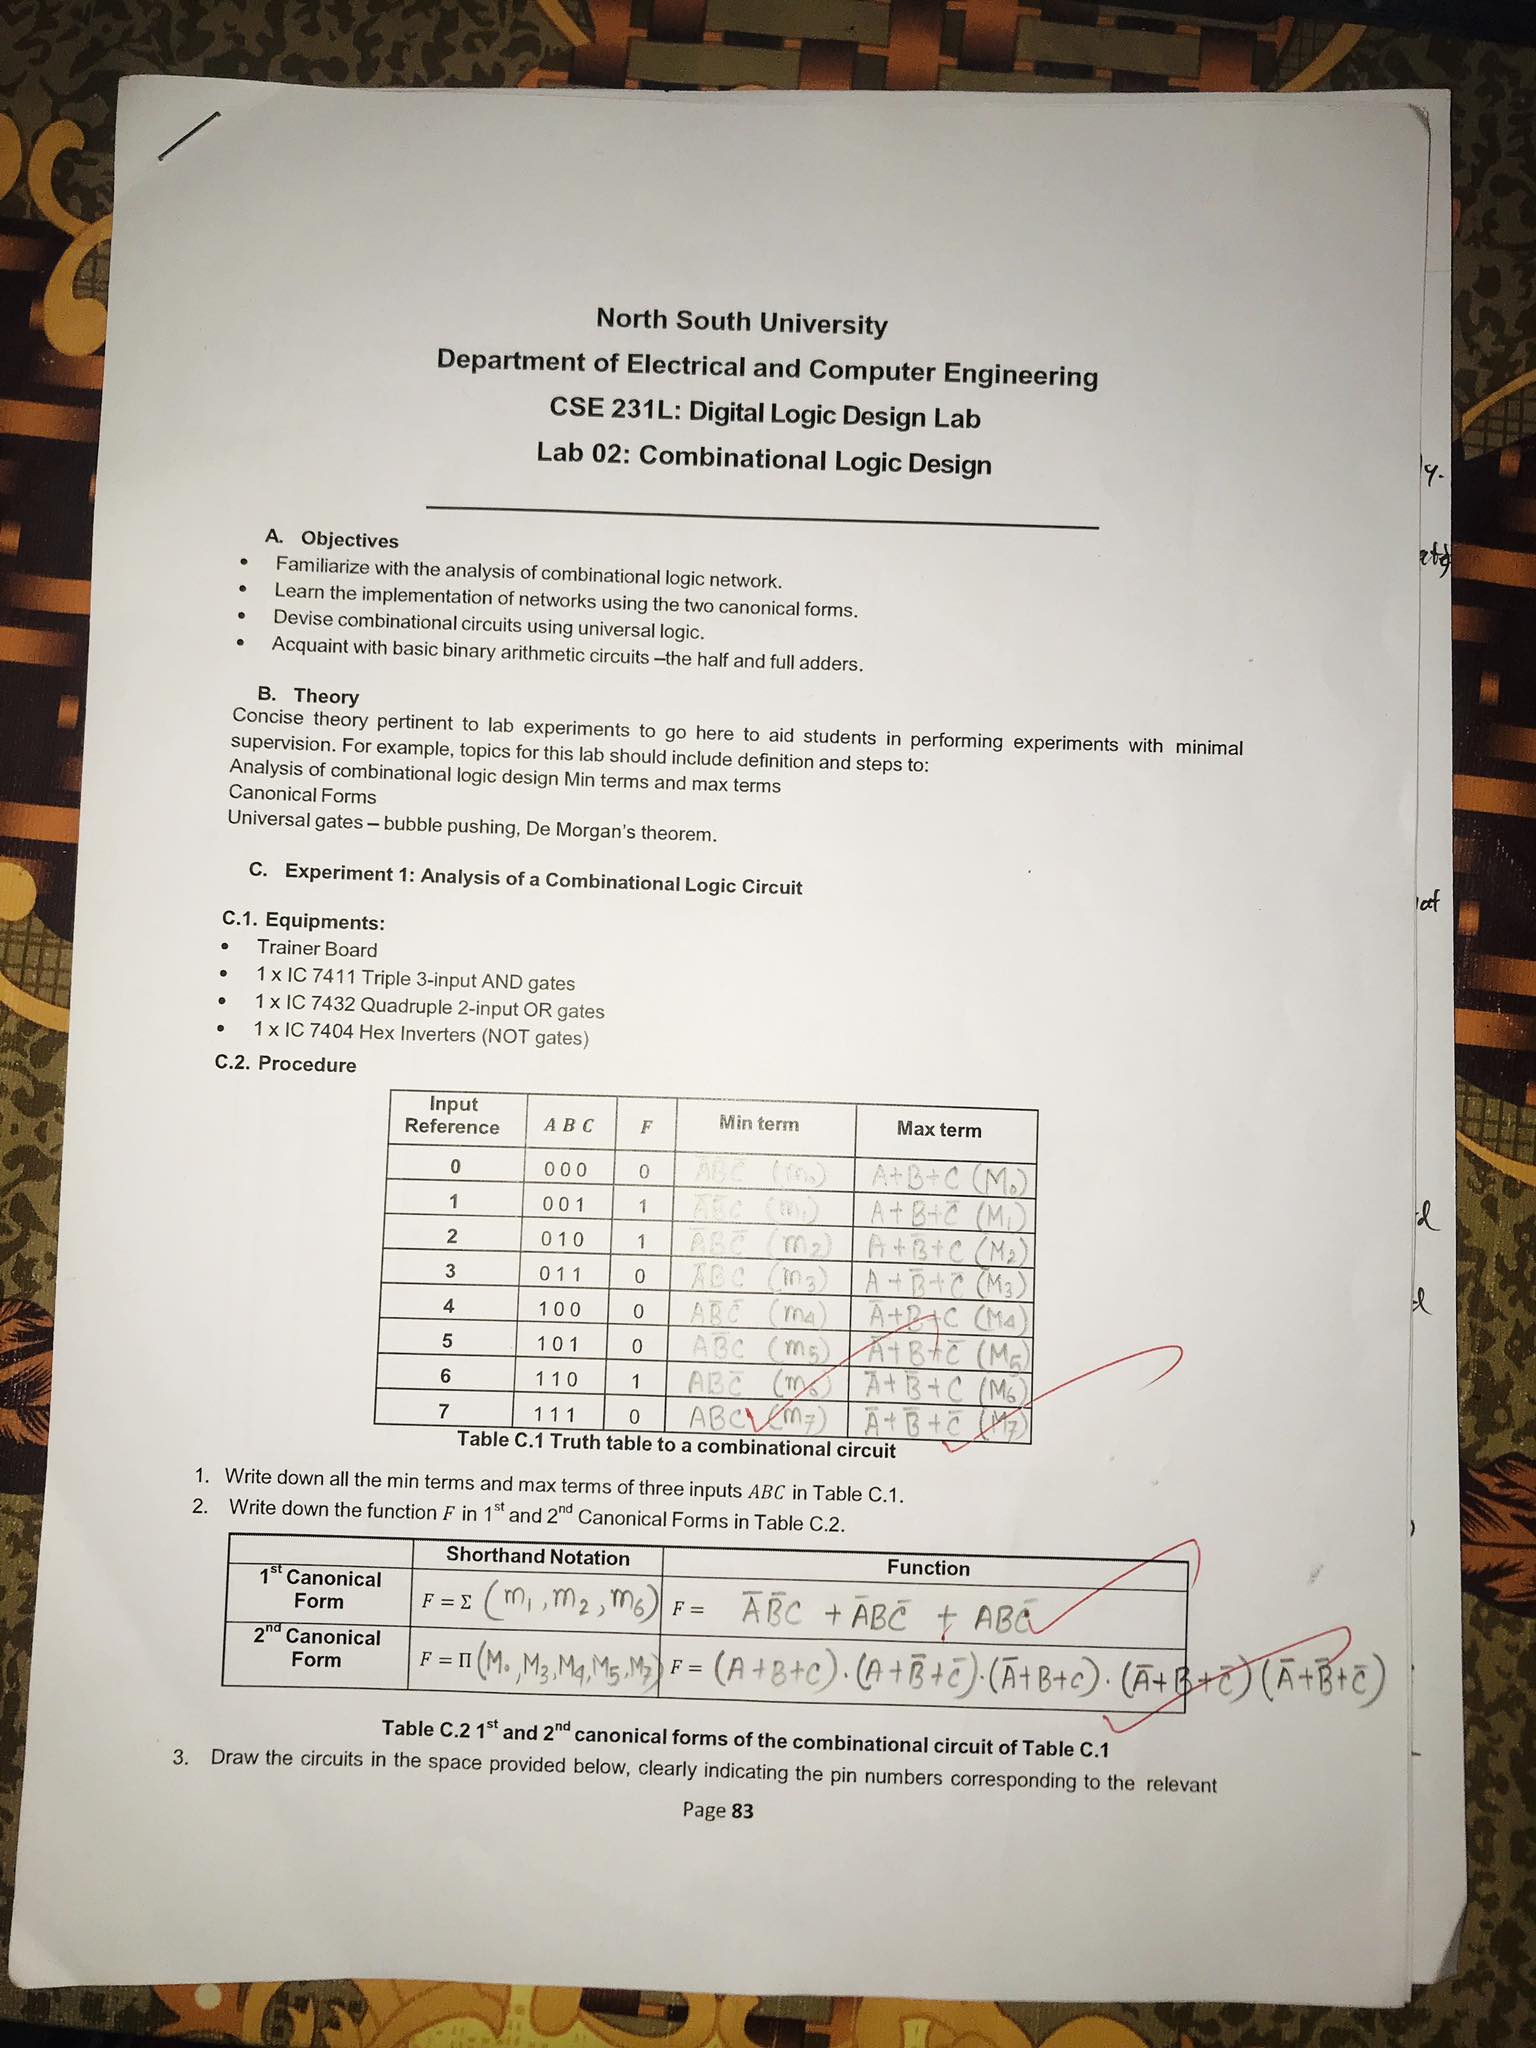 North South University
Department of Electrical and Computer Engineering
CSE 231L: Digital Logic Design Lab
Lab 02: Combinational Logic Design
A. Objectives
• Familiarize with the analysis of combinational logic network.
• Learn the implementation of networks using the two canonical forms.
• Devise combinational circuits using universal logic.
• Acquaint with basic binary arithmetic circuits –the half and full adders.
B. Theory
Concise theory pertinent to lab experiments to go here to aid students in performing experiments with minimal
supervision. For example, topics for this lab should include definition and steps to:
Analysis of combinational logic design Min terms and max terms
Canonical Forms
Universal gates – bubble pushing, De Morgan's theorem.
C. Experiment 1: Analysis of a Combinational Logic Circuit
C.1. Equipments:
• Trainer Board
• 1 x IC 7411 Triple 3-input AND gates
• 1 x IC 7432 Quadruple 2-input OR gates
• 1 x IC 7404 Hex Inverters (NOT gates)
C.2. Procedure
Input Reference A B C F Min term Max term
0 0 0 0 0 A̅B̅C̅ (m₀) A+B+C (M₀)
1 0 0 1 1 A̅B̅C (m₁) A+B+C̅ (M₁)
2 0 1 0 1 A̅BC̅ (m₂) A+B̅+C (M₂)
3 0 1 1 0 A̅BC (m₃) A+B̅+C̅ (M₃)
4 1 0 0 0 AB̅C̅ (m₄) A̅+B+C (M₄)
5 1 0 1 0 AB̅C (m₅) A̅+B+C̅ (M₅)
6 1 1 0 1 ABC̅ (m₆) A̅+B̅+C (M₆)
7 1 1 1 0 ABC (m₇) A̅+B̅+C̅ (M₇)
Table C.1 Truth table to a combinational circuit
1. Write down all the min terms and max terms of three inputs ABC in Table C.1.
2. Write down the function F in 1st and 2nd Canonical Forms in Table C.2.
Shorthand Notation Function
1st Canonical Form F = Σ (m₁, m₂, m₆) F = A̅B̅C + A̅BC̅ + ABC̅
2nd Canonical Form F = Π (M₀, M₃, M₄, M₅, M₇) F = (A+B+C)·(A+B̅+C̅)·(A̅+B+C)·(A̅+B+C̅)(A̅+B̅+C̅)
Table C.2 1st and 2nd canonical forms of the combinational circuit of Table C.1
3. Draw the circuits in the space provided below, clearly indicating the pin numbers corresponding to the relevant
Page 83